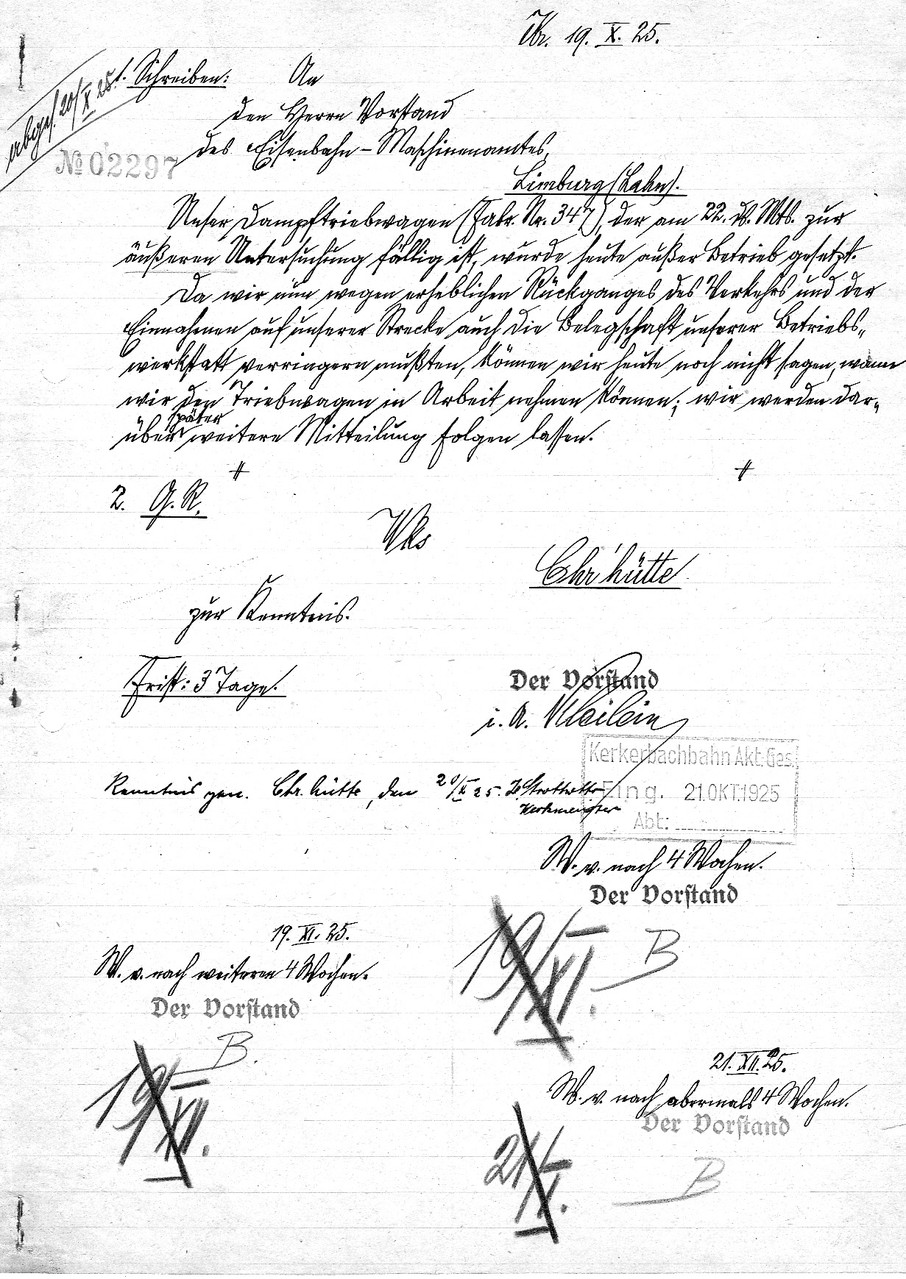 Kr. 19. X. 25.
abges. 20/X 25
1. Schreiben: An
den Herrn Vorstand
des Eisenbahn-Maschinenamtes,
№ 02297
Limburg (Lahn).
Unser Dampftriebwagen (Fabr. Nr. 347), der am 22. ds. Mts. zur
äußeren Untersuchung fällig ist, wurde heute außer Betrieb gesetzt.
Da wir nun wegen erheblichen Rückganges des Verkehrs und der
Einnahmen auf unserer Strecke auch die Belegschaft unserer Betriebs-
werkstatt verringern mußten, können wir heute noch nicht sagen, wann
wir den Triebwagen in Arbeit nehmen können; wir werden dar-
über später weitere Mitteilung folgen lassen.
2. G. R.
Wks
Chr'hütte
zur Kenntnis.
Frist: 3 Tage.
Der Vorstand
i. A.
Kerkerbachbahn Akt. Ges.
Eing. 21. OKT. 1925
Abt:
Kenntnis gen. Chr. hütte, den 20/X 25.
Werkmeister
W. v. nach 4 Wochen.
Der Vorstand
B
19/XI.
19. XI. 25.
W. v. nach weiteren 4 Wochen.
Der Vorstand
B.
19/XII.
21. XII. 25.
W. v. nach abermals 4 Wochen.
Der Vorstand
B
21/I.